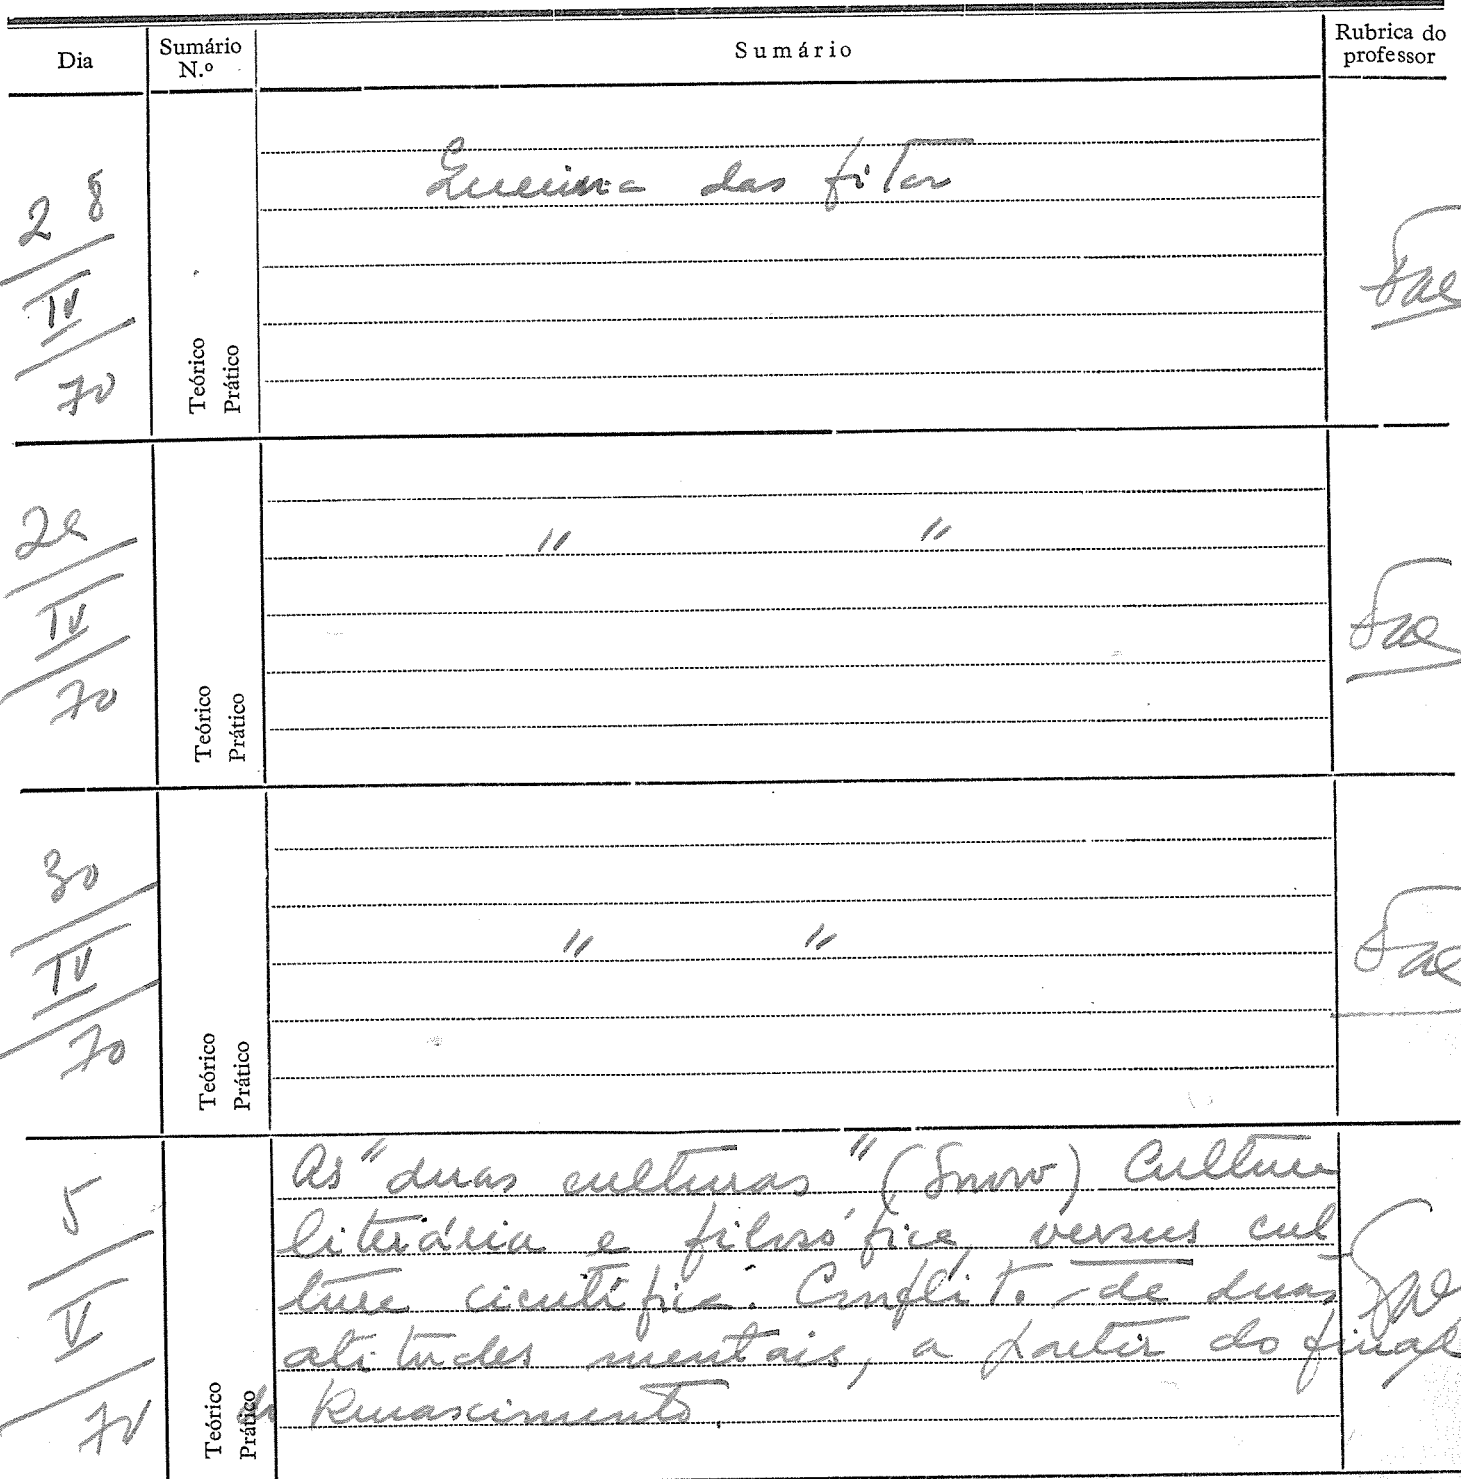 Dia
Sumário N.º
Sumário
Rubrica do professor
28
IV
70
Teórico
Prático
Queima das fitas
29
IV
70
Teórico
Prático
" "
30
IV
70
Teórico
Prático
" "
5
V
70
Teórico
Prático
As "duas culturas" (Snow) Cultura
literária e filosófica versus cul
tura científica. Conflito de duas
atitudes mentais, a partir do final
do Renascimento.